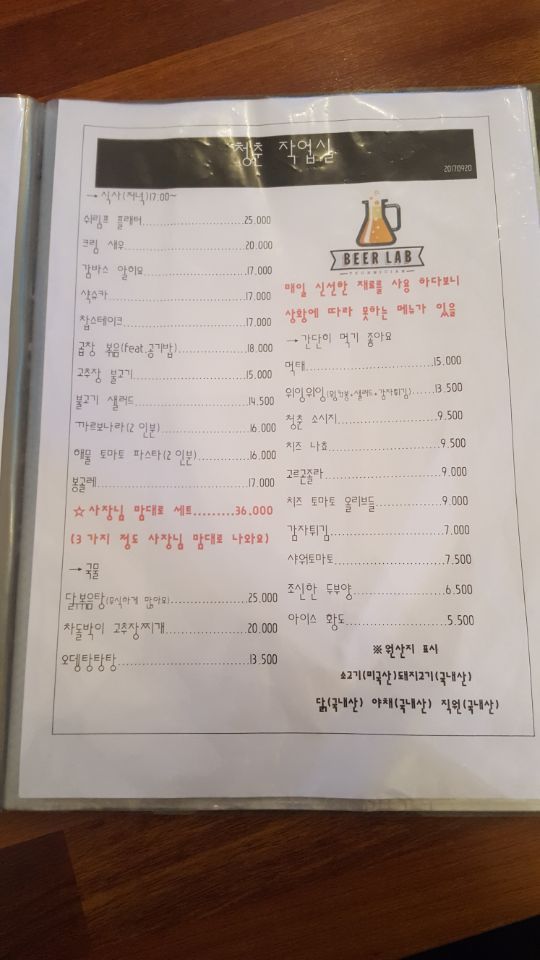 청춘 작업실
20170920
→ 식사(저녁)17:00~
쉬림프 플래터........................25,000
크림 새우........................20,000
감바스 알히요........................17,000
샥슈카........................17,000
찹스테이크........................17,000
곱창 볶음(feat.공기밥)........................18,000
고추장 불고기........................15,000
불고기 샐러드........................14,500
까르보나라(2 인분)........................16,000
해물 토마토 파스타(2 인분)........................16,000
봉골레........................17,000
☆사장님 맘대로 세트.........36,000
(3 가지 정도 사장님 맘대로 나와요)
→ 국물
닭볶음탕(무식하게 많아요)........................25,000
차돌박이 고추장찌개........................20,000
오뎅탕탕탕........................13,500
BEER LAB
매일 신선한 재료를 사용 하다보니
상황에 따라 못하는 메뉴가 있을
→ 간단히 먹기 좋아요
먹태........................15,000
위잉위잉(윙+봉+샐러드+감자튀김)......13,500
청춘 소시지........................9,500
치즈 나쵸........................9,500
고르곤졸라........................9,000
치즈 토마토 올리브들........................9,000
감자튀김........................7,000
샤워토마토........................7,500
조신한 두부양........................6,500
아이스 황도........................5,500
※원산지 표시
소고기(미국산)돼지고기(국내산)
닭(국내산) 야채(국내산) 직원(국내산)